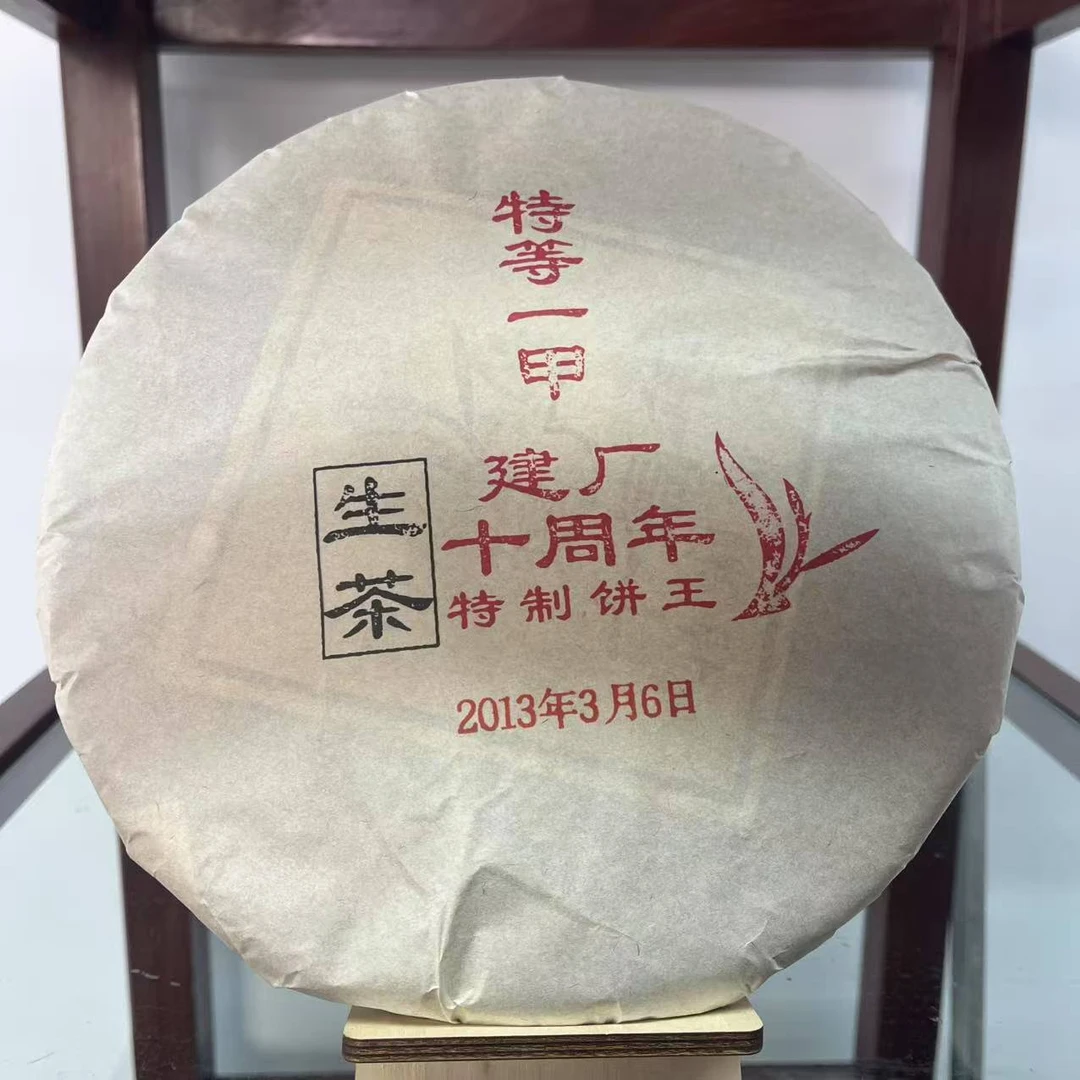 特等一甲
生茶
建厂
十周年
特制饼王
2013年3月6日